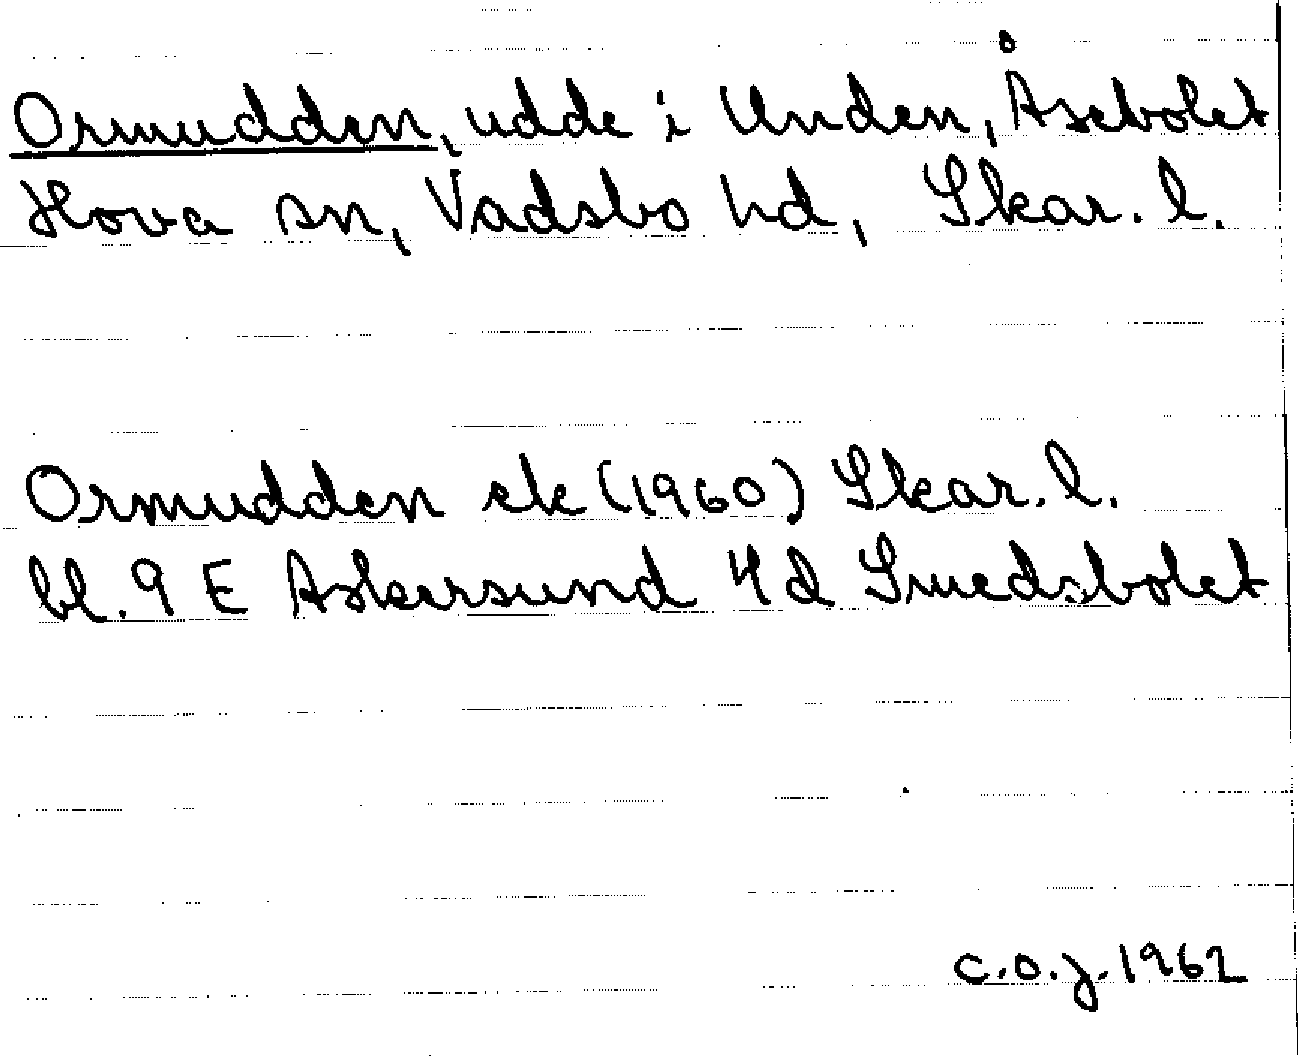 Ormudden, udde i Unden, Åsebolet
Hova sn, Vadsbo hd, Skar. l.
Ormudden ek (1960) Skar. l.
bl. 9 E Askersund 4d Smedsbolet
C.O.J. 1962